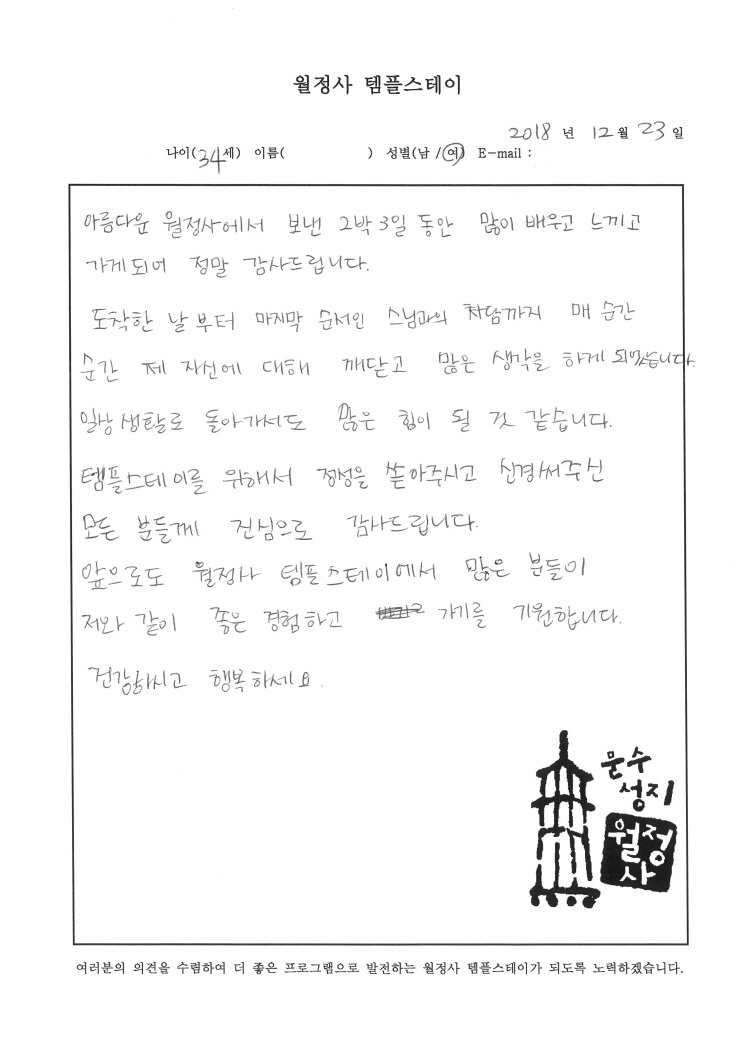 월정사 템플스테이
2018 년 12 월 23 일
나이(34세) 이름( ) 성별(남 / 여) E-mail :
아름다운 월정사에서 보낸 2박 3일 동안 많이 배우고 느끼고
가게 되어 정말 감사드립니다.
도착한 날부터 마지막 순서인 스님과의 차담까지 매 순간
순간 제 자신에 대해 깨닫고 많은 생각을 하게 되었습니다.
일상 생활로 돌아가서도 많은 힘이 될 것 같습니다.
템플스테이를 위해서 정성을 쏟아주시고 신경써주신
모든 분들께 진심으로 감사드립니다.
앞으로도 월정사 템플스테이에서 많은 분들이
저와 같이 좋은 경험하고 가기를 기원합니다.
건강하시고 행복하세요.
문수
성지
월정
사
여러분의 의견을 수렴하여 더 좋은 프로그램으로 발전하는 월정사 템플스테이가 되도록 노력하겠습니다.